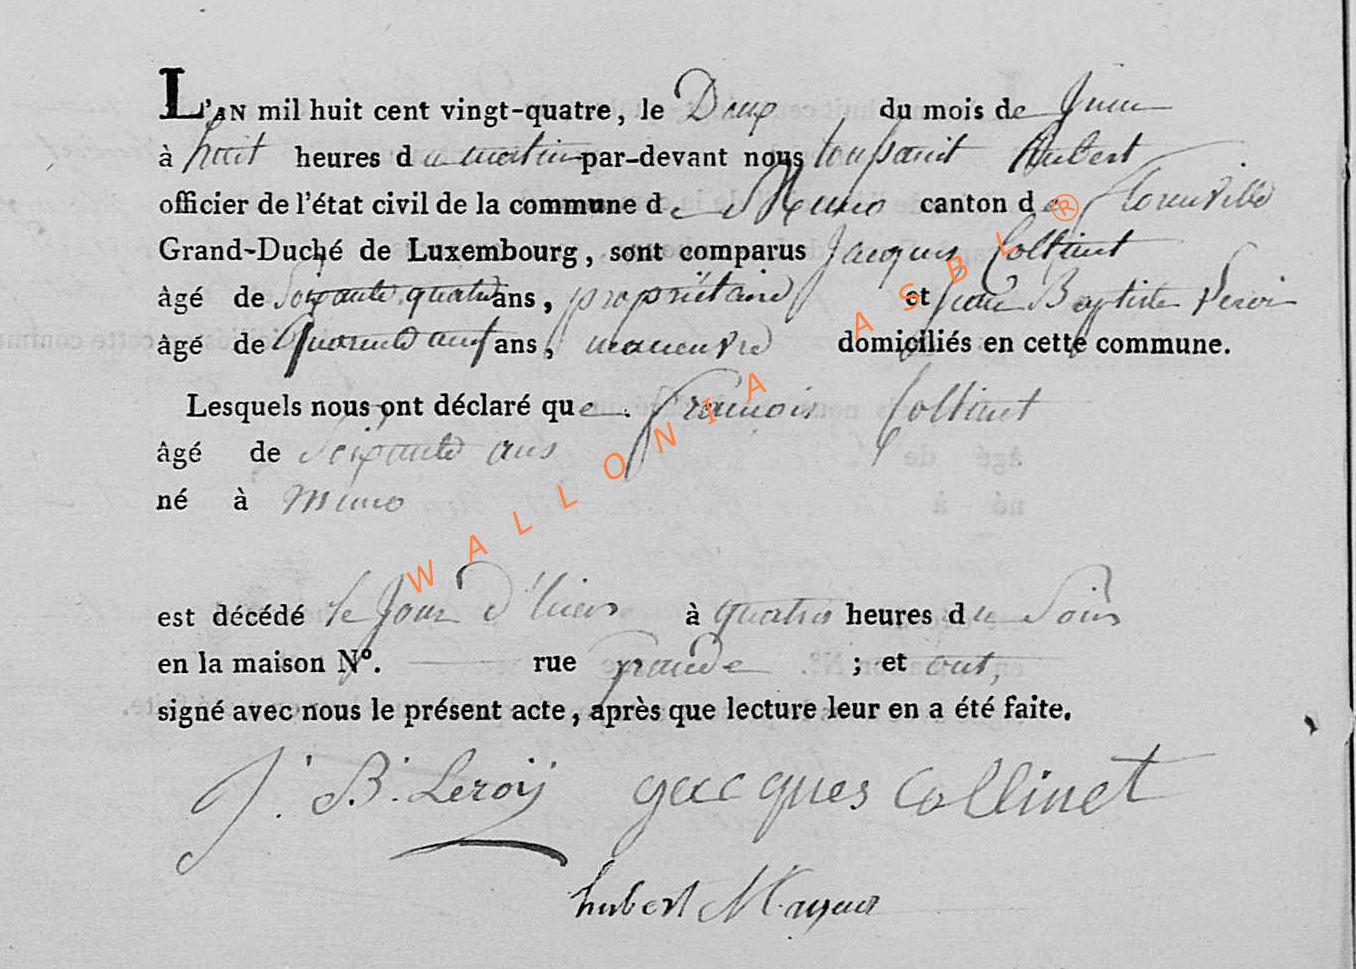 L'AN mil huit cent vingt-quatre, le Deux du mois de Juin
à huit heures du matin par-devant nous toussaint hubert
officier de l'état civil de la commune de Muno canton de florenville
Grand-Duché de Luxembourg, sont comparus Jacques Collinet
âgé de Soixante quatre ans, propriétaire et jean Baptiste Leroi
âgé de Quarante neuf ans, manœuvre domiciliés en cette commune.
Lesquels nous ont déclaré que françois Collinet
âgé de Soixante ans
né à Muno
est décédé le Jour d'hier à quatre heures du Soir
en la maison N°. rue grande ; et ont,
signé avec nous le présent acte, après que lecture leur en a été faite.
J. B. Leroÿ jacques collinet
hubert Mayeur
WALLONIA ASBL ®